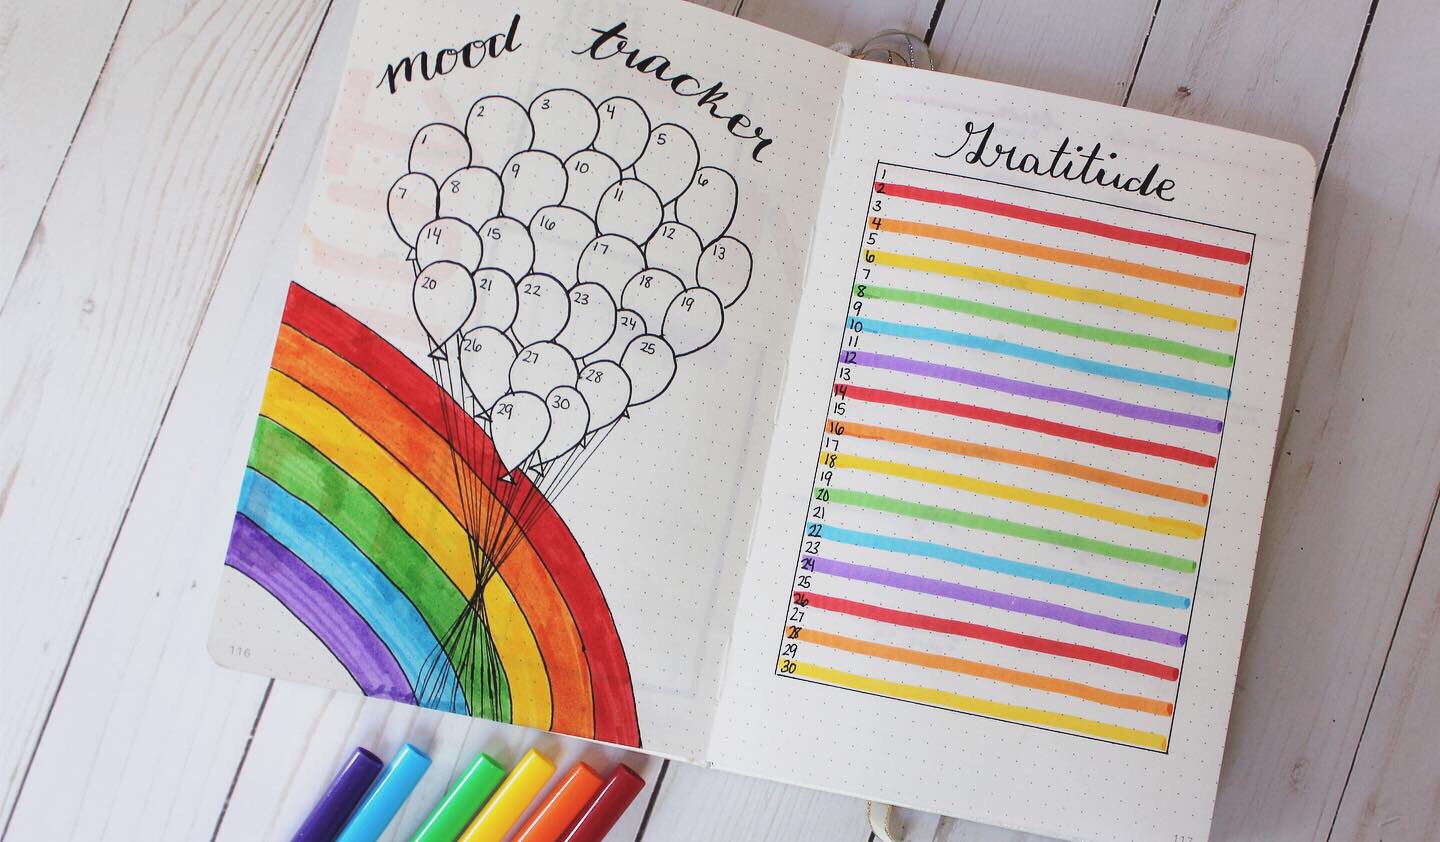 mood tracker
1
2
3
4
5
6
7
8
9
10
11
12
13
14
15
16
17
18
19
20
21
22
23
24
25
26
27
28
29
30
116
Gratitude
1
2
3
4
5
6
7
8
9
10
11
12
13
14
15
16
17
18
19
20
21
22
23
24
25
26
27
28
29
30
117